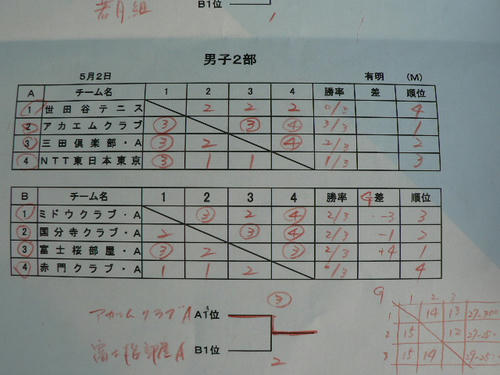 若月組 B1位 1
男子2部
5月2日 有明 (M)
A チーム名 1 2 3 4 勝率 差 順位
1 世田谷テニス 2 2 2 0/3 4
2 アカエムクラブ ③ ③ ④ 3/3 1
3 三田倶楽部・A ③ 2 ④ 2/3 2
4 NTT東日本東京 ③ 1 1 1/3 3
B チーム名 1 2 3 4 勝率 差 順位
1 ミドウクラブ・A ③ 2 ④ 2/3 -3 3
2 国分寺クラブ・A 2 ③ ④ 2/3 -1 2
3 富士桜部屋・A ③ 2 ③ 2/3 +4 1
4 赤門クラブ・A 1 1 2 0/3 4
③
アカエムクラブA A1位
富士桜部屋A B1位 2
G 1 2 3
1 14 13
2 15 12
3 15 14